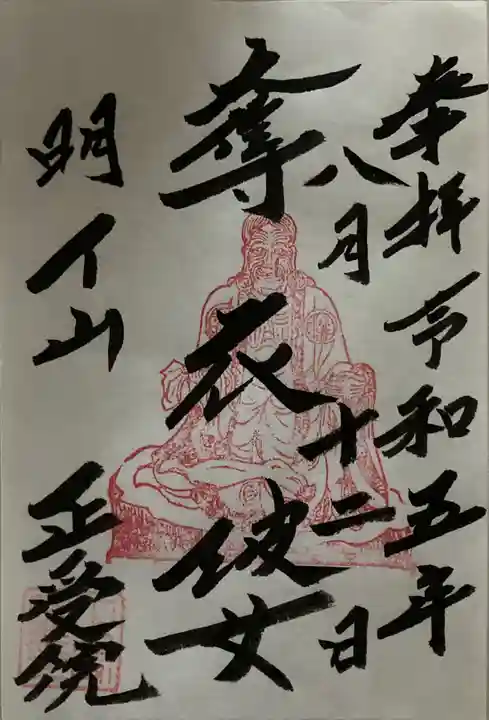 奉拝令和五年
八月十二日
奪衣婆
明了山
正受院